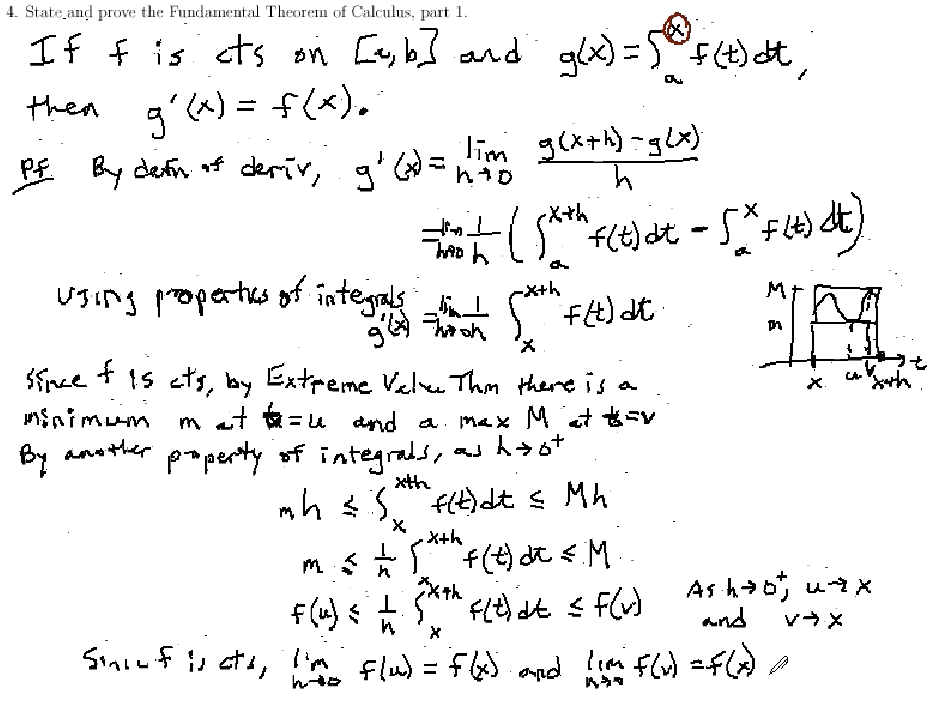 4. State and prove the Fundamental Theorem of Calculus, part 1.
If f is cts on [a,b] and g(x) = ∫_a^x f(t) dt,
then g'(x) = f(x).
Pf By defn of deriv, g'(x) = lim_{h→0} (g(x+h) - g(x))/h
= lim_{h→0} 1/h ( ∫_a^{x+h} f(t) dt - ∫_a^x f(t) dt )
Using properties of integrals
g'(x) = lim_{h→0} 1/h ∫_x^{x+h} f(t) dt
M
m
x u v x+h t
Since f is cts, by Extreme Value Thm there is a
minimum m at t=u and a max M at t=v
By another property of integrals, as h→0⁺
mh ≤ ∫_x^{x+h} f(t) dt ≤ Mh
m ≤ 1/h ∫_x^{x+h} f(t) dt ≤ M
f(u) ≤ 1/h ∫_x^{x+h} f(t) dt ≤ f(v) As h→0⁺, u→x
and v→x
Since f is cts, lim_{h→0} f(u) = f(x) and lim_{h→0} f(v) = f(x)